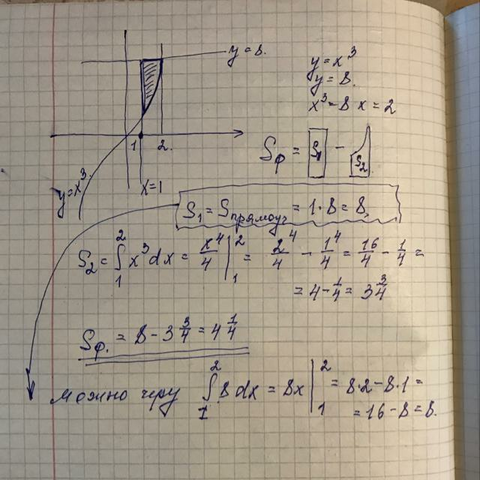 y = 8.
y = x³
y = 8.
x³ = 8 x = 2
1 2.
x = 1
y = x³.
Sф = S₁ − S₂
S₁ = Sпрямоуг = 1·8 = 8.
S₂ = ∫₁² x³dx = x⁴/4 |₁² = 2⁴/4 − 1⁴/4 = 16/4 − 1/4 =
= 4 − 1/4 = 3 3/4
Sф. = 8 − 3 3/4 = 4 1/4
можно ∫₁² 8 dx = 8x |₁² = 8·2 − 8·1 =
= 16 − 8 = 8.